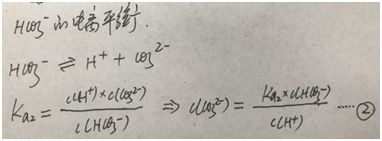 HCO₃⁻ 的电离平衡.
HCO₃⁻ ⇌ H⁺ + CO₃²⁻
Ka₂ = c(H⁺)×c(CO₃²⁻) / c(HCO₃⁻) ⇒ c(CO₃²⁻) = Ka₂×c(HCO₃⁻) / c(H⁺) ……②